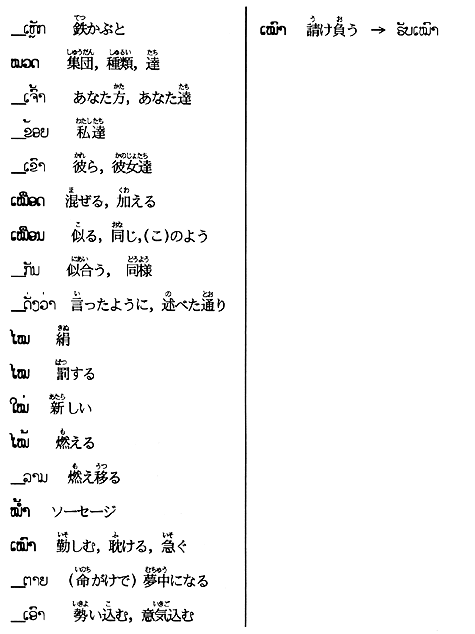 __ເຫຼັກ 鉄かぶと
ໝວດ 集団, 種類, 達
__ເຈົ້າ あなた方, あなた達
__ຂ້ອຍ 私達
__ເຂົາ 彼ら, 彼女達
ເໝືອດ 混ぜる, 加える
ເໝືອນ 似る, 同じ,(こ)のよう
__ກັນ 似合う, 同様
__ດັ່ງວ່າ 言ったように, 述べた通り
ໄໝ 絹
ໄໝ 罰する
ໃໝ່ 新しい
ໄໝ້ 燃える
__ລາມ 燃え移る
ໝ້ຳ ソーセージ
ເໝົາ 勤しむ, 耽ける, 急ぐ
__ຕາຍ (命がけで) 夢中になる
__ເອົາ 勢い込む, 意気込む
ເໝົາ 請け負う → ຮັບເໝົາ